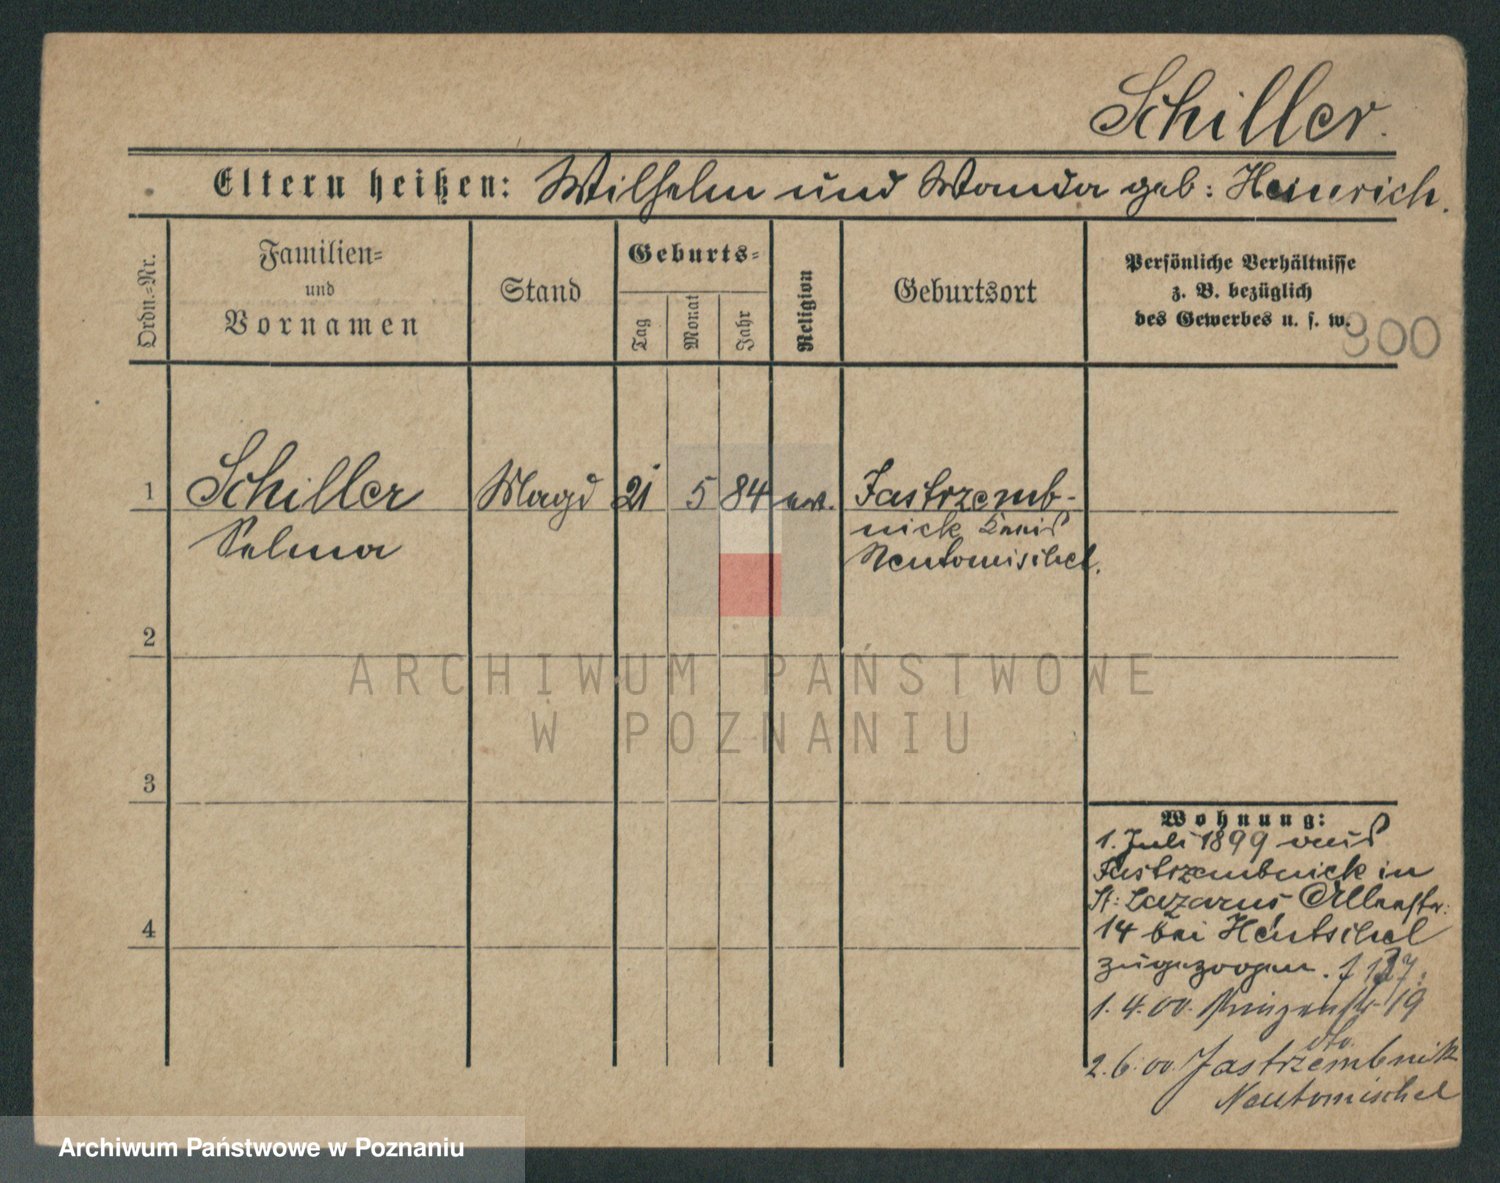 Schiller.
Eltern heißen: Wilhelm und Wanda geb: Heinrich.
Ordn.-Nr.
Familien-
und
Vornamen
Stand
Geburts-
Tag
Monat
Jahr
Religion
Geburtsort
Persönliche Verhältnisse
z. B. bezüglich
des Gewerbes u. s. w.
300
1
Schiller
Magd
21
5
84
ev.
Jastrzemb-
Selma
nick Kreis
Neutomischel.
2
ARCHIWUM PAŃSTWOWE
W POZNANIU
3
4
Wohnung:
1. Juli 1899 aus
Jastrzembnick in
St: Lazarus
14 bei Hentschel
zugezogen.
1.4.00. Prinzenstr. 19
2.6.00. Jastrzembnik
Neutomischel
Archiwum Państwowe w Poznaniu